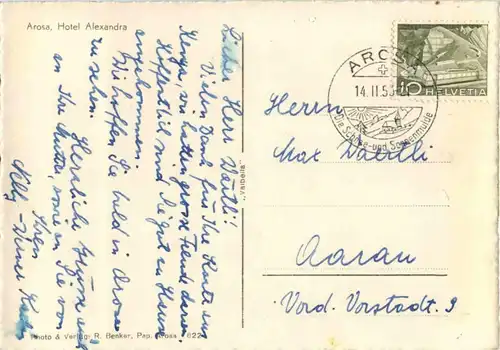 Arosa, Hotel Alexandra
Lieber Herr Wälti!
Vielen Dank für Ihre Karte aus
wir hatten grosse Freude daran.
Hoffentlich sind Sie gut zu Hause
angekommen.
Wir hoffen Sie bald in Arosa
zu sehen.
Herzliche Grüsse auch
an Ihre Mutter, sowie an Sie von
Ihren
Nelly - Werner
Photo & Verlag: R. Benker, Pap. Arosa 622
"Valbella"
AROSA
14.II.53
Die Schnee- und Sonnenmulde
10 HELVETIA
Herrn
Max Wälti
Aarau
Vord. Vorstadt 9